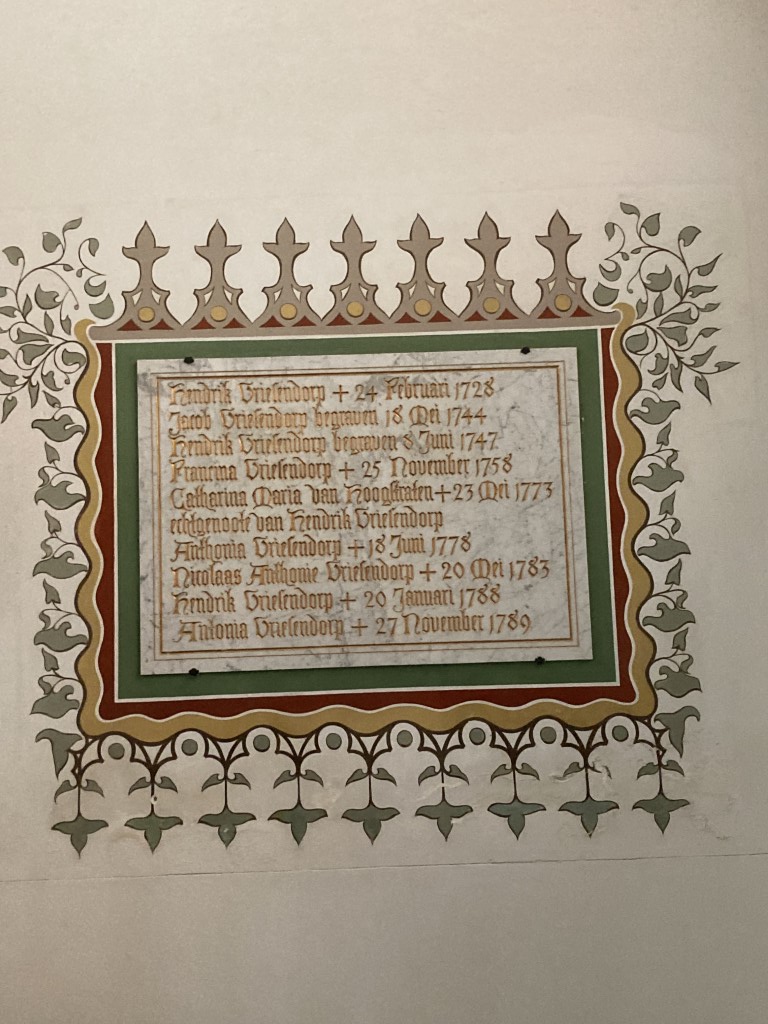 Hendrik Vriesendorp + 24 Februari 1728
Jacob Vriesendorp begraven 18 Mei 1744
Hendrik Vriesendorp begraven 8 Juni 1747
Francina Vriesendorp + 25 November 1758
Catharina Maria van Hoogstraten + 23 Mei 1773
echtgenoote van Hendrik Vriesendorp
Anthonia Vriesendorp + 18 Juni 1778
Nicolaas Anthonie Vriesendorp + 20 Mei 1783
Hendrik Vriesendorp + 20 Januari 1788
Antonia Vriesendorp + 27 November 1789